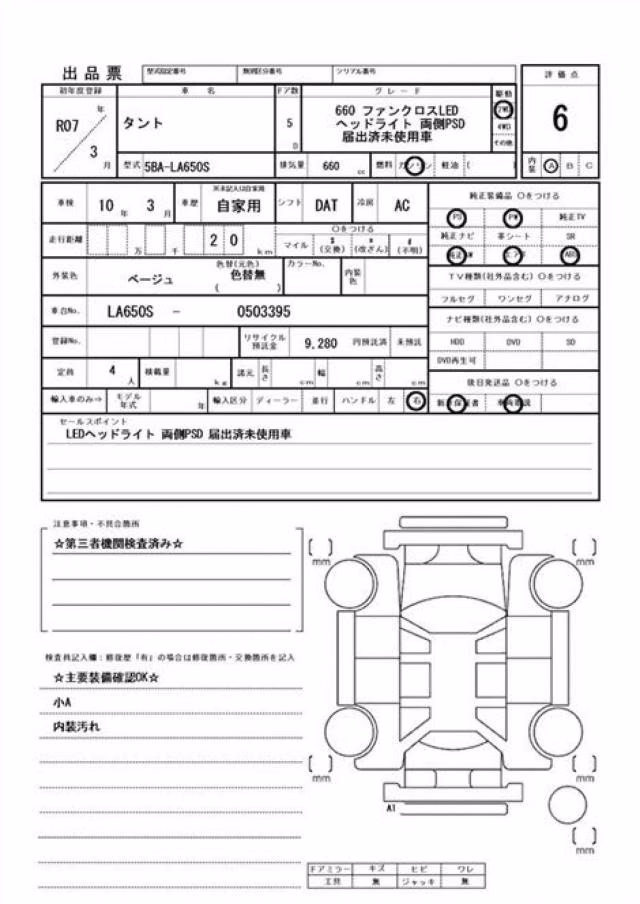 出品票 型式指定番号 類別区分番号 シリアル番号
評価点
初年度登録 車名 ドア数 グレード 駆動
R07 年 3 月
タント
5 D
660 ファンクロスLED
ヘッドライト 両側PSD
届出済未使用車
2WD
4WD
その他
6
型式 5BA-LA650S 排気量 660 cc 燃料 ガソリン 軽油 ( )
内装 A B C
車検 10 年 3 月 車歴 ※未記入は自家用 自家用 シフト DAT 冷房 AC
純正装備品 〇をつける
PS PW 純正TV
走行距離 万 千 20 km
〇をつける
マイル $(交換) *(改ざん) #(不明)
純正ナビ 革シート SR
純正AW エアB ABS
外装色 ベージュ 色替(元色) 色替無 ( ) カラーNo. 内装色
TV種類(社外品含む) 〇をつける
フルセグ ワンセグ アナログ
車台No. LA650S - 0503395
ナビ種類(社外品含む) 〇をつける
登録No. リサイクル預託金 9,280 円預託済 未預託
HDD DVD SD
DVD再生可
定員 4 人 積載量 kg 諸元 長さ cm 幅 cm 高さ cm
後日発送品 〇をつける
輸入車のみ⇒ モデル年式 年 輸入区分 ディーラー 並行 ハンドル 左 右
新車保証書 車両取説
セールスポイント
LEDヘッドライト 両側PSD 届出済未使用車
注意事項・不具合箇所
☆第三者機関検査済み☆
[ ] mm
[ ] mm
検査員記入欄：修復歴「有」の場合は修復箇所・交換箇所を記入
☆主要装備確認OK☆
小A
内装汚れ
[ ] mm
[ ] mm
A1
[ ] mm
ドアミラー キズ ヒビ ワレ
工具 無 ジャッキ 無